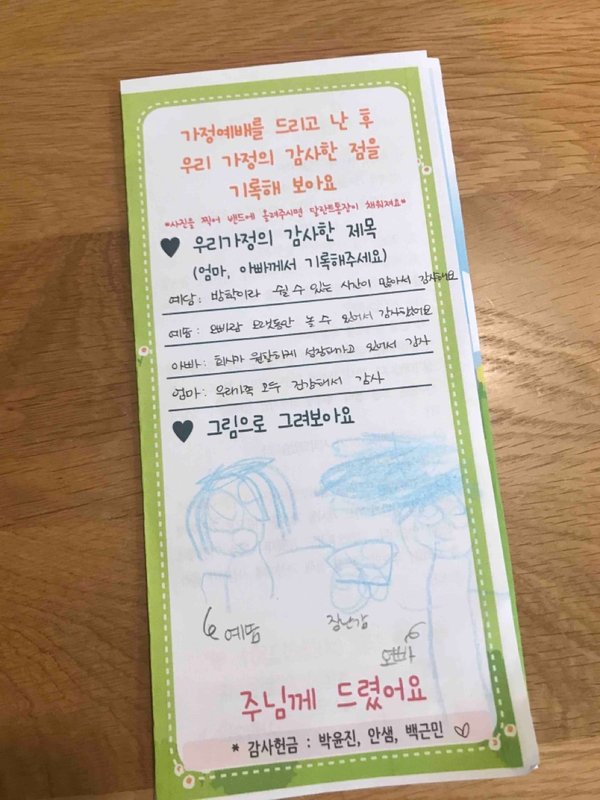 가정예배를 드리고 난 후
우리 가정의 감사한 점을
기록해 보아요
*사진을 찍어 밴드에 올려주시면 달란트통장이 채워져요*
우리가정의 감사한 제목
(엄마, 아빠께서 기록해주세요)
예담: 방학이라 쉴 수 있는 시간이 많아서 감사해요
예뜸: 오빠랑 오랫동안 놀 수 있어서 감사했어요
아빠: 회사가 원활하게 성장해가고 있어서 감사
엄마: 우리가족 모두 건강해서 감사
그림으로 그려보아요
예뜸
장난감
오빠
주님께 드렸어요
* 감사헌금 : 박윤진, 안샘, 백근민